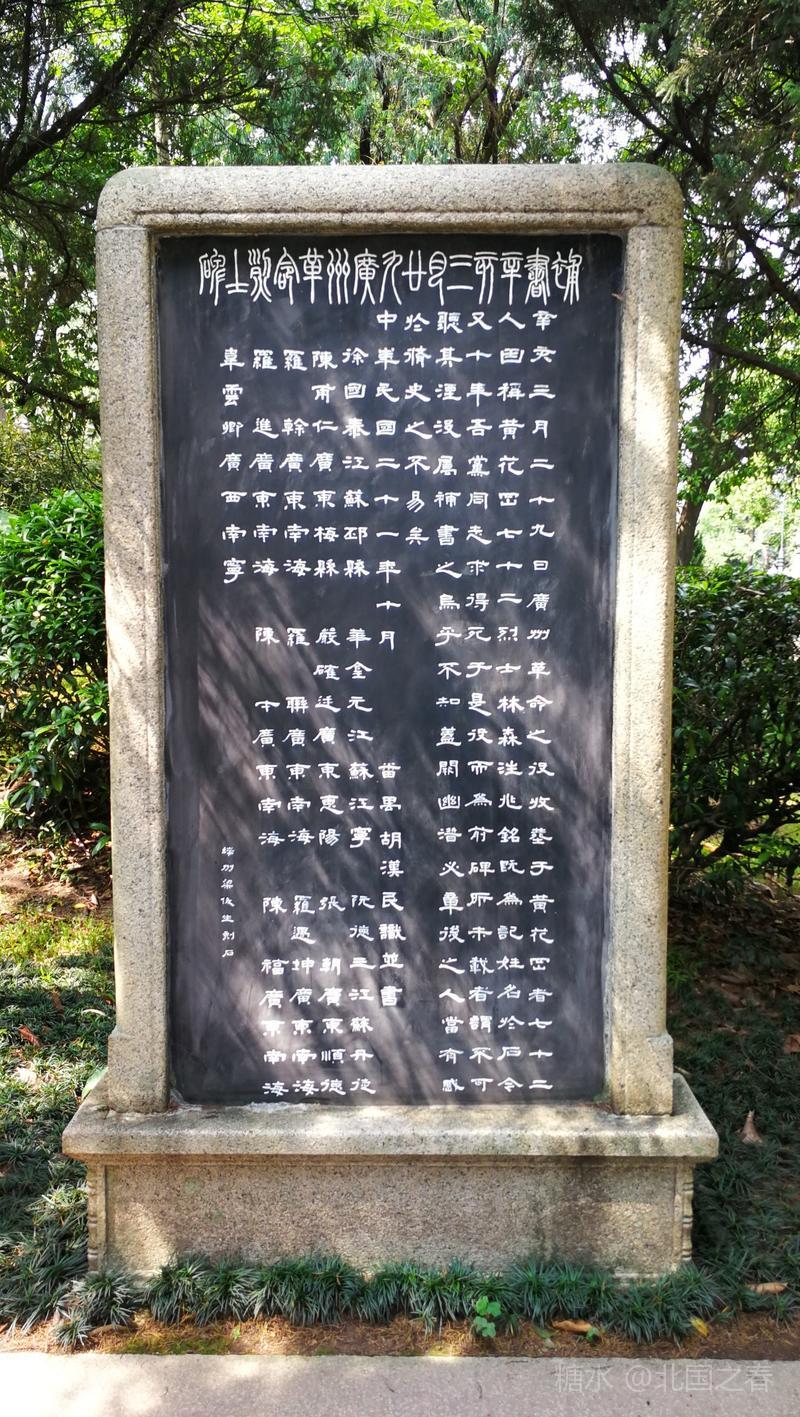 補書辛亥三月廿九廣州革命烈士碑
辛亥三月二十九日廣州革命之役收葬于黃花岡者七十二
人因稱黃花岡七十二烈士林森汪兆銘既為記姓名於石今
又十年吾黨同志求得死于是役而為前碑所未載者謂不可
聽其湮没屬補書之烏乎不知蓋闕幽潜必章後之人當有感
於脩史之不易矣
中華民國二十一年十月 番禺胡漢民識並書
徐國泰江蘇邳縣 華金元江蘇江寧 阮德三江蘇丹徒
陳甫仁廣東梅縣 嚴確廷廣東惠陽 張 朝廣東順德
羅 幹廣東南海 羅 聯廣東南海 羅遇坤廣東南海
羅 進廣東南海 陳 才廣東南海 陳 福廣東南海
韋雲卿廣西南寧
梁俊生刻石
糖水 @北国之春